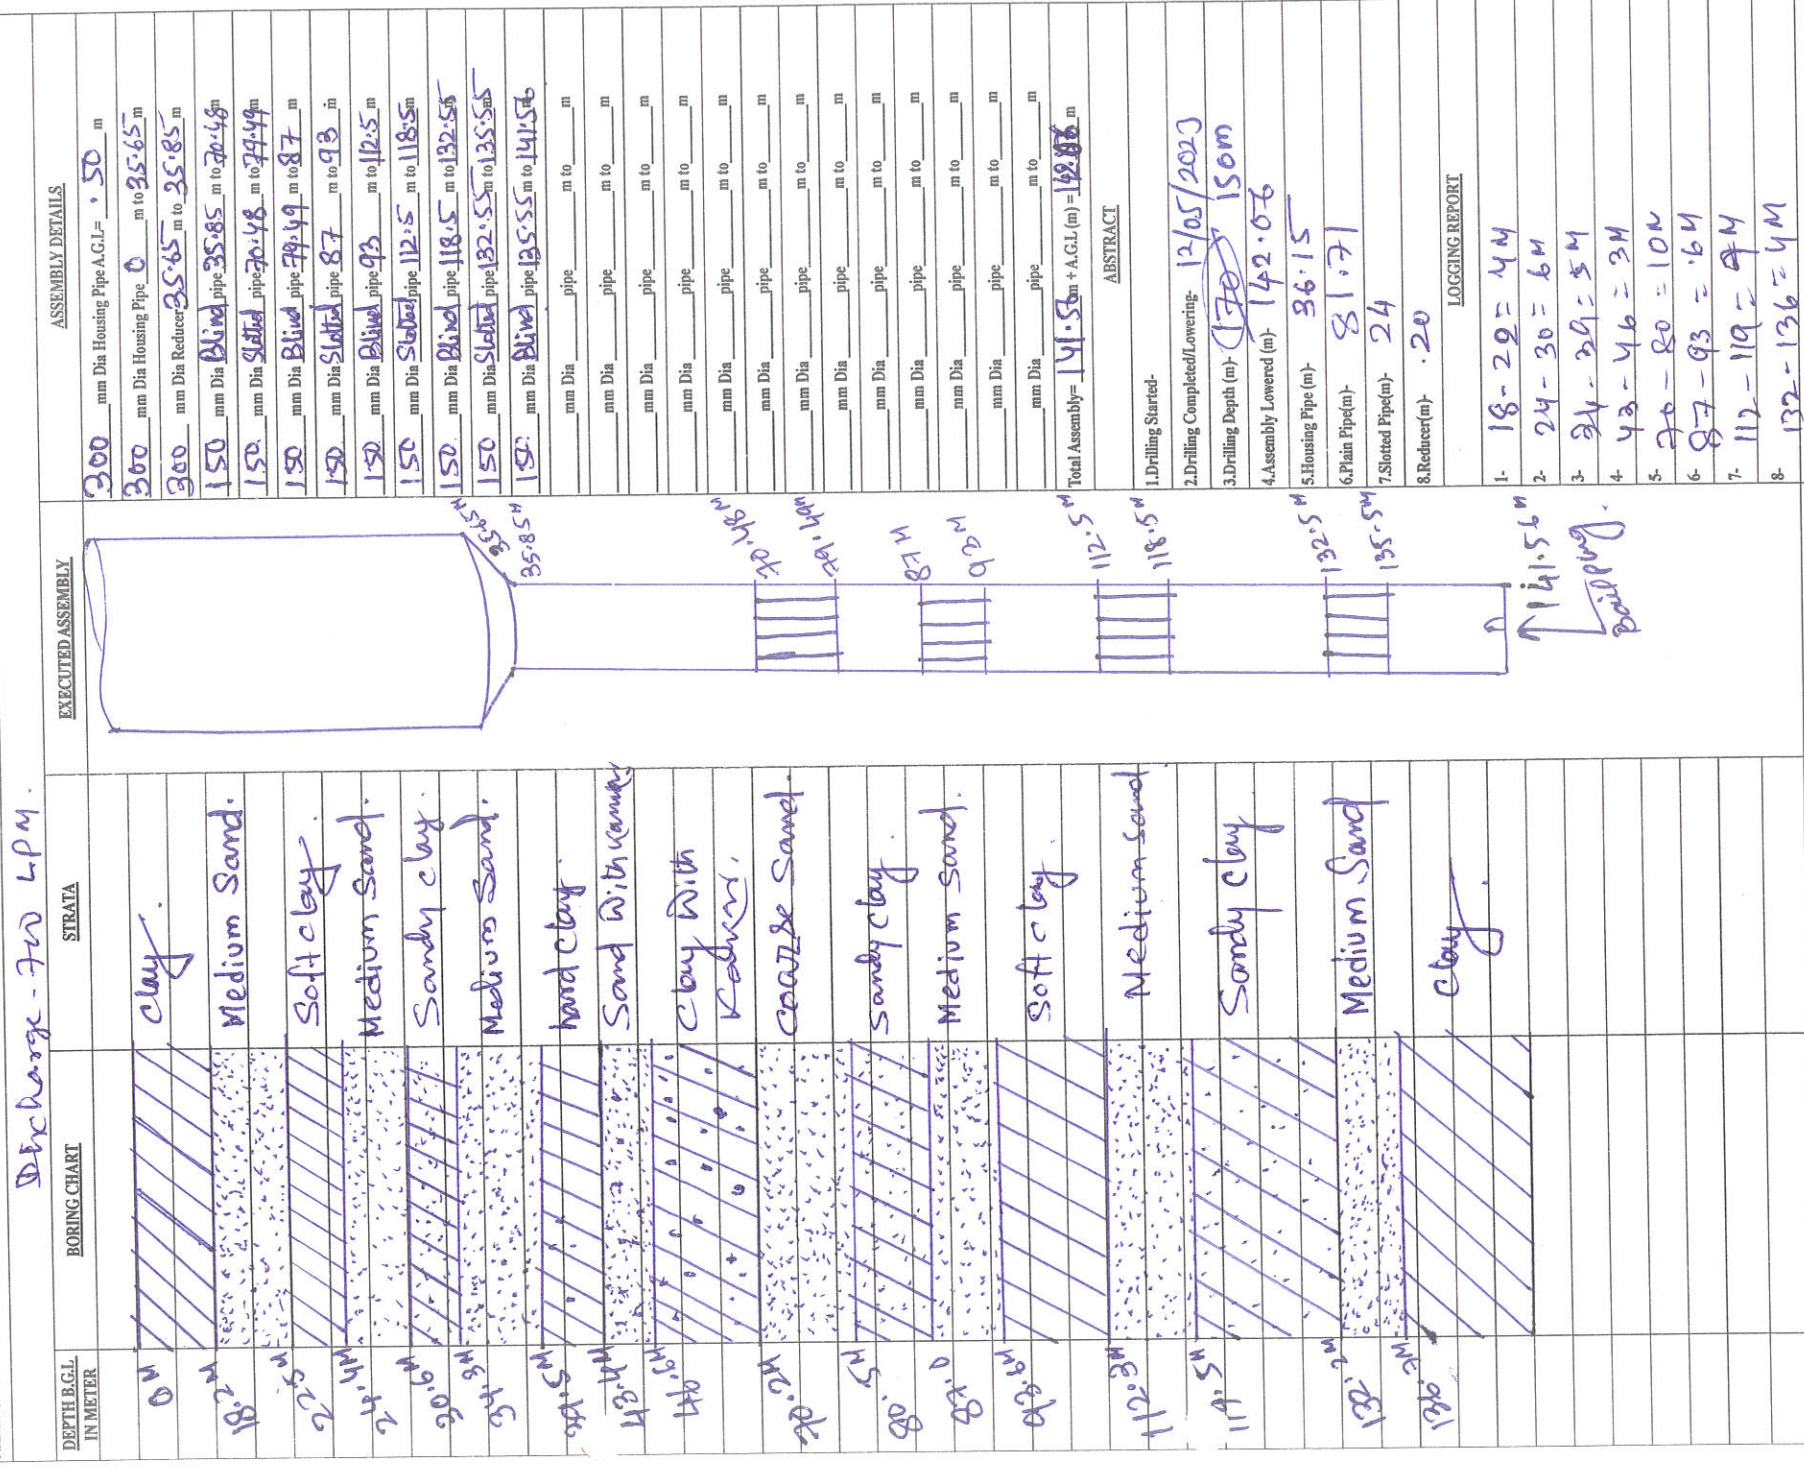 Discharge - 700 LPM.
DEPTH B.G.L IN METER
BORING CHART
STRATA
EXECUTED ASSEMBLY
ASSEMBLY DETAILS
0 M
Clay.
18.2 M
Medium Sand.
22.5 M
Soft clay.
24.4 M
Medium Sand.
30.6 M
Sandy clay.
34.3 M
Medium Sand.
39.5 M
hard clay.
43.4 M
Sand with Kanker
46.6 M
Clay with
Kanker.
70.2 M
Coarse Sand.
80.5 M
Sandy Clay
87.0
Medium Sand.
93.6 M
Soft clay
112.3 M
Medium Sand
119.5 M
Sandy Clay
132.2 M
Medium Sand
136.7 M
Clay.
35.65 M
35.85 M
70.48 M
79.49 M
87 M
93 M
112.5 M
118.5 M
132.5 M
135.5 M
141.56 M
300 mm Dia Housing Pipe A.G.L= .50 m
300 mm Dia Housing Pipe 0 m to 35.65 m
300 mm Dia Reducer 35.65 m to 35.85 m
150 mm Dia Blind pipe 35.85 m to 70.48 m
150 mm Dia Slotted pipe 70.48 m to 79.49 m
150 mm Dia Blind pipe 79.49 m to 87 m
150 mm Dia Slotted pipe 87 m to 93 m
150 mm Dia Blind pipe 93 m to 112.5 m
150 mm Dia Slotted pipe 112.5 m to 118.5 m
150 mm Dia Blind pipe 118.5 m to 132.55 m
150 mm Dia Slotted pipe 132.55 m to 135.55 m
150 mm Dia Blind pipe 135.55 m to 141.56
mm Dia pipe m to m
mm Dia pipe m to m
mm Dia pipe m to m
mm Dia pipe m to m
mm Dia pipe m to m
mm Dia pipe m to m
mm Dia pipe m to m
mm Dia pipe m to m
mm Dia pipe m to m
mm Dia pipe m to m
mm Dia pipe m to m
mm Dia pipe m to m
mm Dia pipe m to m
Total Assembly= 141.56 m + A.G.L (m) = m
ABSTRACT
1.Drilling Started-
2.Drilling Completed/Lowering- 12/05/2023
3.Drilling Depth (m)- 170 150m
4.Assembly Lowered (m)- 142.06
5.Housing Pipe (m)- 36.15
6.Plain Pipe(m)- 81.71
7.Slotted Pipe(m)- 24
8.Reducer(m)- .20
LOGGING REPORT
1- 18 - 22 = 4 M
2- 24 - 30 = 6 M
3- 34 - 39 = 5 M
4- 43 - 46 = 3 M
5- 70 - 80 = 10 M
6- 87 - 93 = 6 M
7- 112 - 119 = 7 M
8- 132 - 136 = 4 M